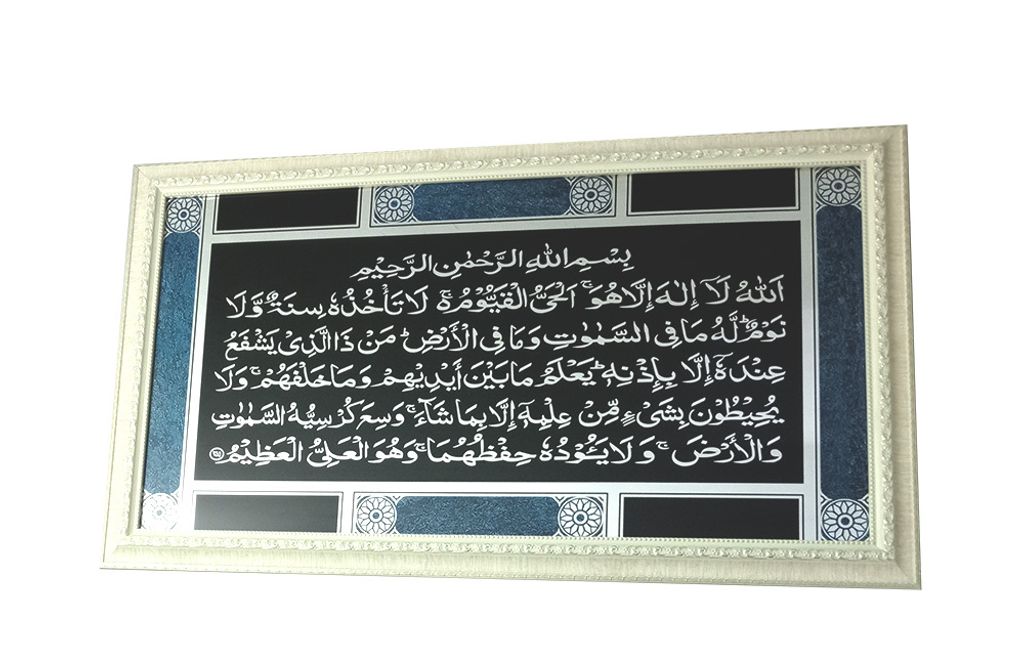 بِسْمِ اللهِ الرَّحْمٰنِ الرَّحِيْمِ
اَللهُ لَآ اِلٰهَ اِلَّا هُوَ ۚ اَلْحَىُّ الْقَيُّوْمُ ۚ لَا تَأْخُذُهٗ سِنَةٌ وَّلَا
نَوْمٌ ؕ لَّهٗ مَا فِى السَّمٰوٰتِ وَمَا فِى الْاَرْضِ ؕ مَنْ ذَا الَّذِىْ يَشْفَعُ
عِنْدَهٗۤ اِلَّا بِاِذْنِهٖ ؕ يَعْلَمُ مَا بَيْنَ اَيْدِيْهِمْ وَمَا خَلْفَهُمْ ۚ وَلَا
يُحِيْطُوْنَ بِشَىْءٍ مِّنْ عِلْمِهٖۤ اِلَّا بِمَا شَآءَ ۚ وَسِعَ كُرْسِيُّهُ السَّمٰوٰتِ
وَالْاَرْضَ ۚ وَلَا يَـُٔوْدُهٗ حِفْظُهُمَا ۚ وَهُوَ الْعَلِىُّ الْعَظِيْمُ ۝٢٥٥